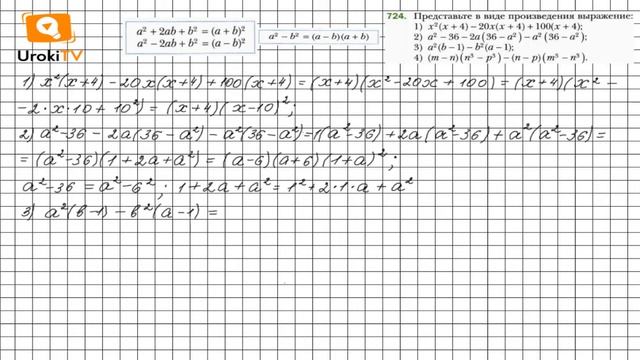 UrokiTV
a² + 2ab + b² = (a + b)²
a² − 2ab + b² = (a − b)²
a² − b² = (a − b)(a + b)
724. Представьте в виде произведения выражение:
1) x²(x + 4) − 20x(x + 4) + 100(x + 4);
2) a² − 36 − 2a(36 − a²) − a²(36 − a²);
3) a²(b − 1) − b²(a − 1);
4) (m − n)(n³ − p³) − (n − p)(m³ − n³).
1) x²(x+4) − 20x(x+4) + 100(x+4) = (x+4)(x² − 20x + 100) = (x+4)(x² −
− 2·x·10 + 10²) = (x+4)(x−10)²;
2) a²−36 − 2a(36 − a²) − a²(36 − a²) = 1(a²−36) + 2a(a²−36) + a²(a²−36) =
= (a²−36)(1+2a+a²) = (a−6)(a+6)(1+a)²;
a²−36 = a²−6²; 1+2a+a² = 1²+2·1·a+a²
3) a²(b−1) − b²(a−1) =